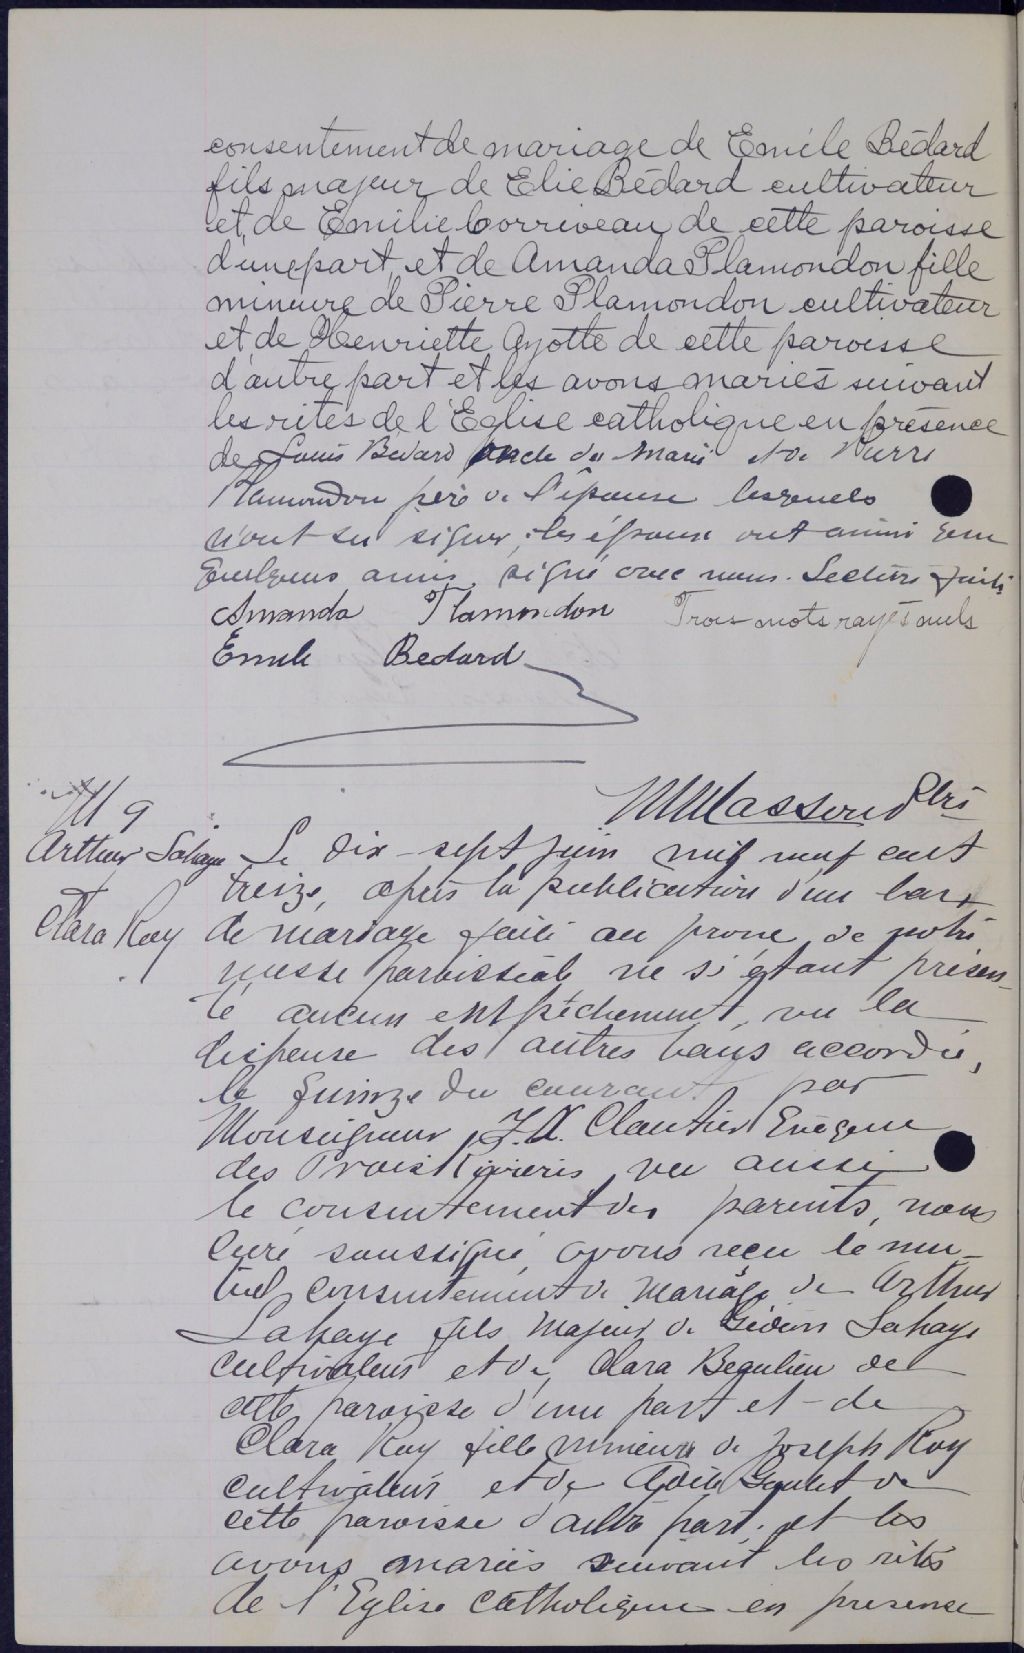 consentement de mariage de Emile Bédard
fils majeur de Elie Bédard cultivateur
et de Emilie Corriveau de cette paroisse
d'une part, et de Amanda Plamondon fille
mineure de Pierre Plamondon cultivateur
et de Henriette Ayotte de cette paroisse
d'autre part et les avons mariés suivant
les rites de l'Eglise catholique en présence
de Louis Bédard oncle du mari et de Pierre
Plamondon père de l'épouse lesquels
n'ont su signer, les époux ont ainsi que
quelques amis, signé avec nous. Lecture faite
Amanda Plamondon Trois mots rayés nuls
Emile Bedard
Ptre
M 9
Arthur Lahaye
Clara Roy
Le dix-sept juin mil neuf cent
treize, après la publication d'un ban
de mariage faite au prône de notre
messe paroissiale ne s'étant présen-
té aucun empêchement, vu la
dispense des autres bans accordée,
le quinze du courant par
Monseigneur F.X. Cloutier Evêque
des Trois Rivières, vu aussi
le consentement des parents, nous
curé soussigné, avons reçu le mu-
tuel consentement de mariage de Arthur
Lahaye fils majeur de Gédéon Lahaye
cultivateur et de Clara Beaulieu de
cette paroisse d'une part et de
Clara Roy fille mineure de Joseph Roy
cultivateur et de Goulet de
cette paroisse d'autre part, et les
avons mariés suivant les rites
de l'Eglise catholique en presence